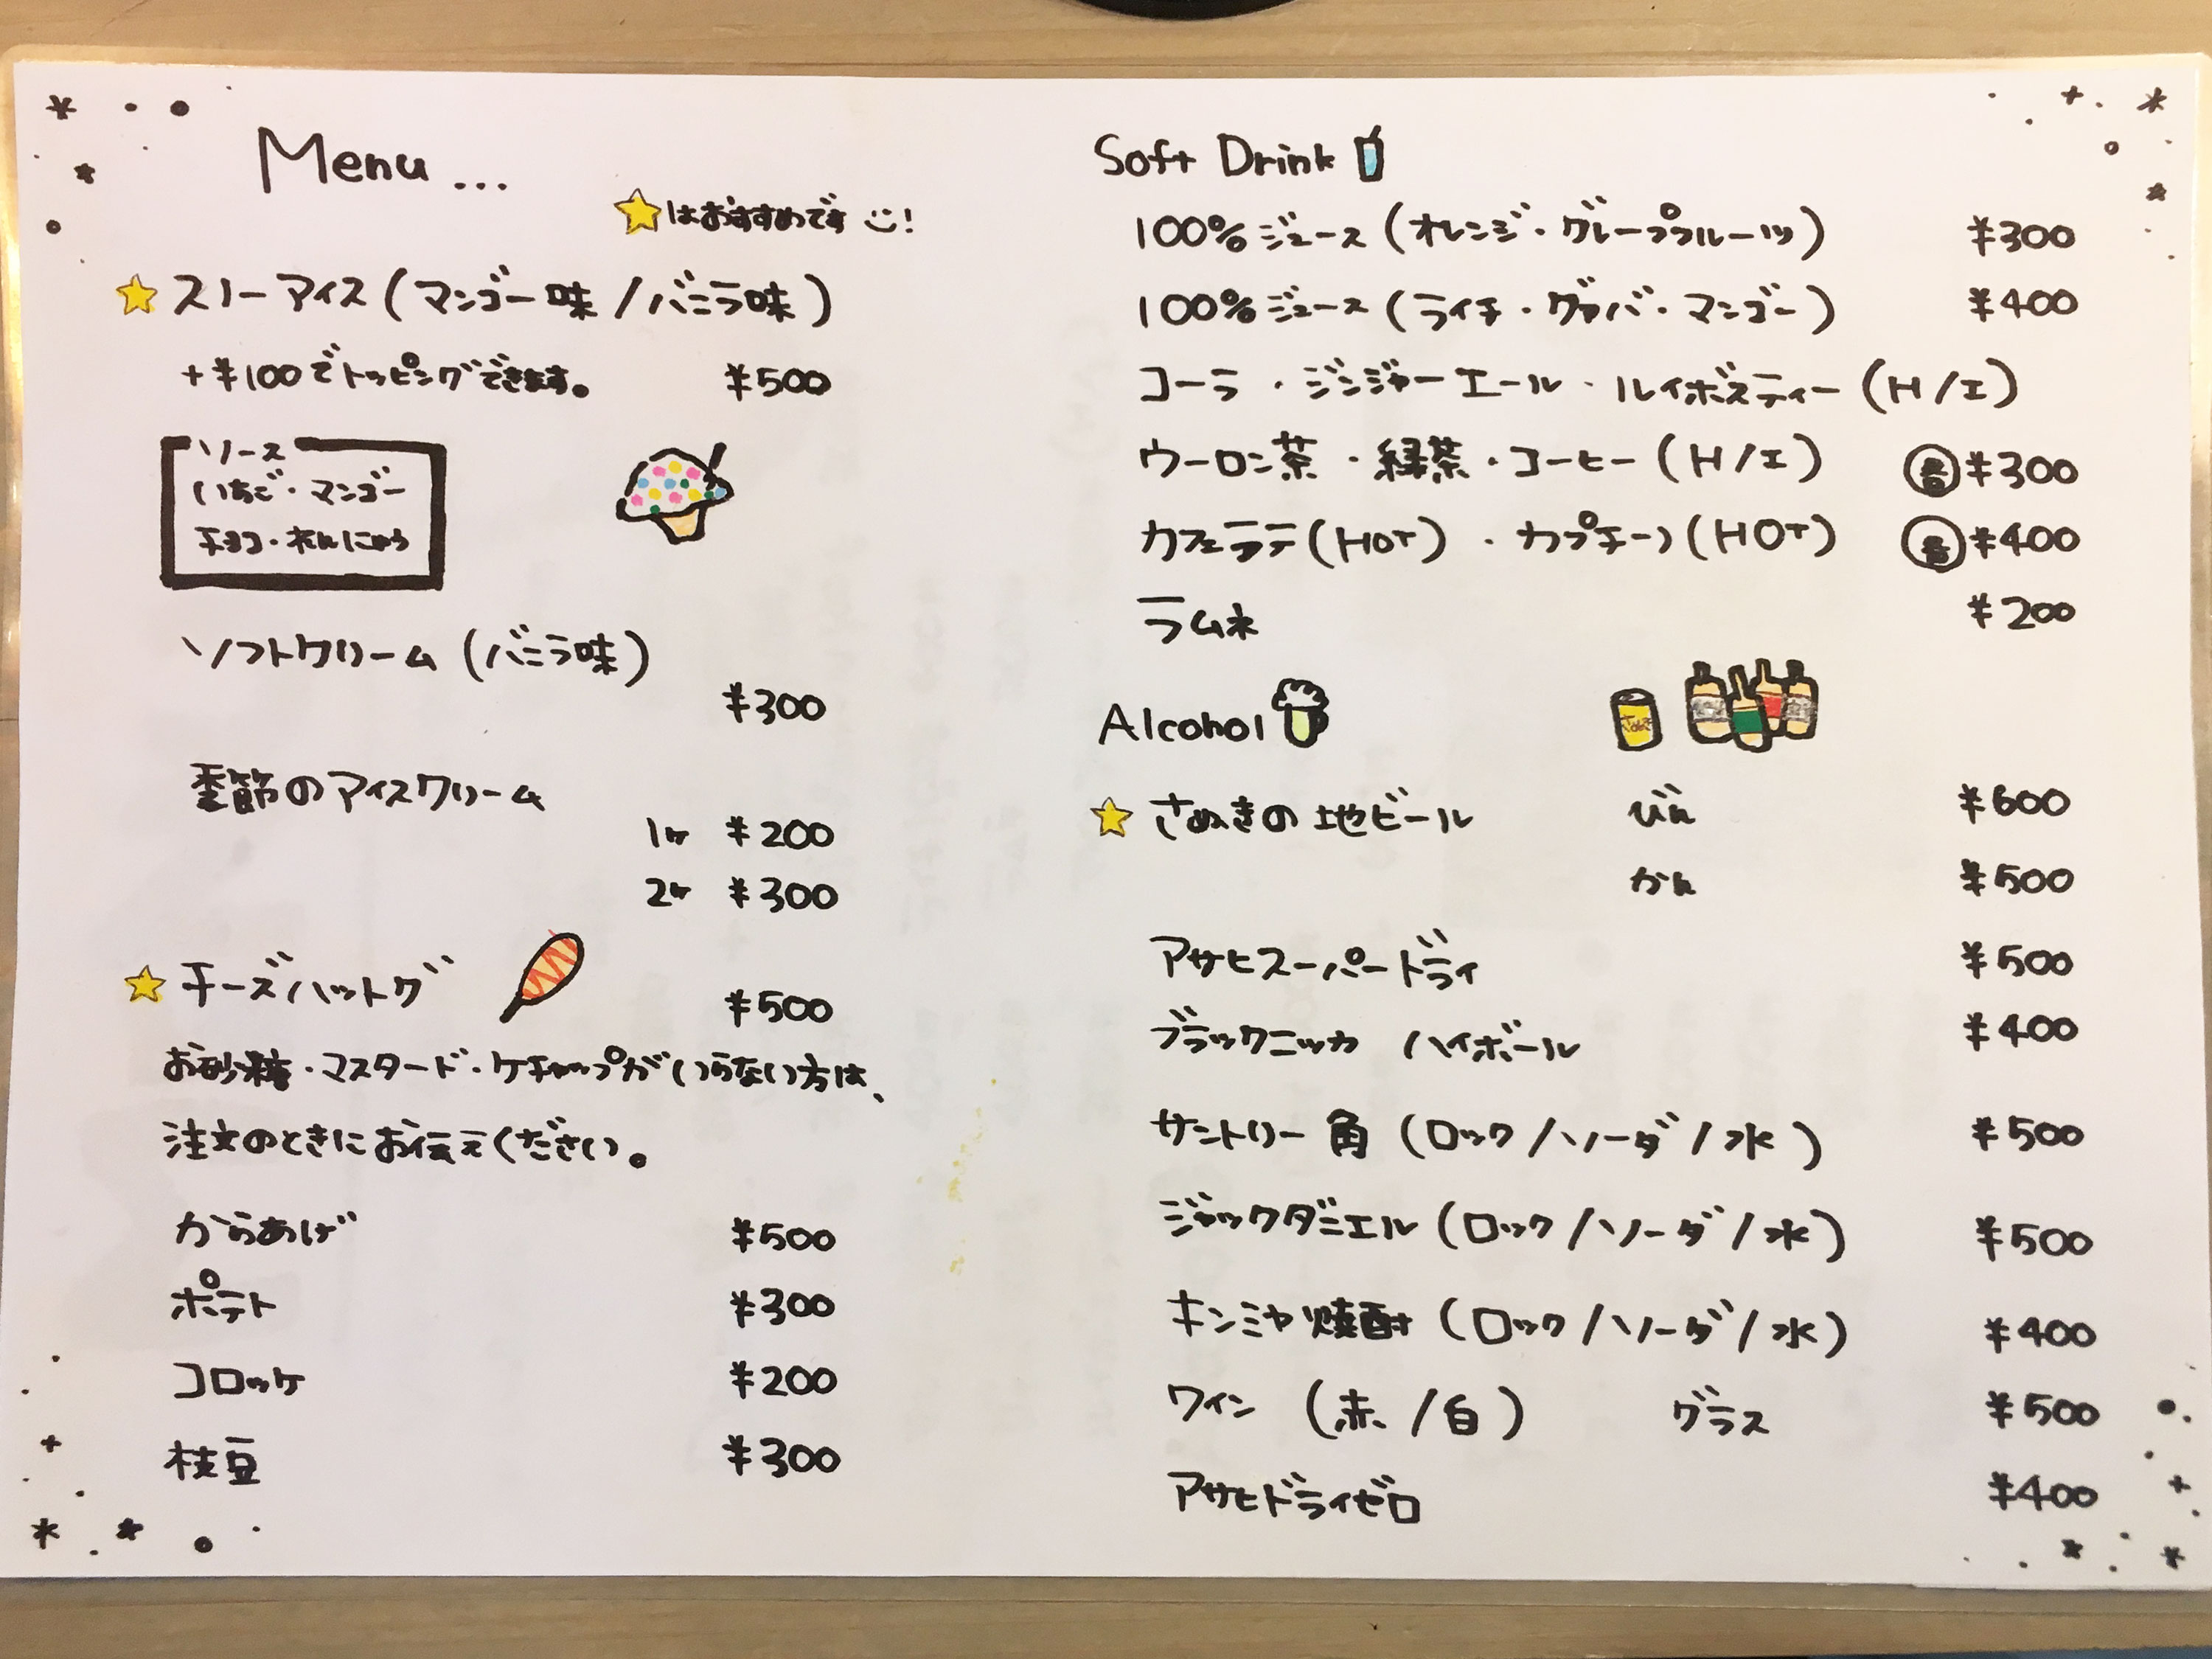 Menu...
はおすすめです!
スノーアイス(マンゴー味/バニラ味)
+¥100でトッピングできます。 ¥500
ソース
いちご・マンゴー
チョコ・れんにゅう
ソフトクリーム(バニラ味)
¥300
季節のアイスクリーム
1ヶ ¥200
2ヶ ¥300
チーズハットグ
¥500
お砂糖・マスタード・ケチャップがいらない方は、
注文のときにお伝えください。
からあげ ¥500
ポテト ¥300
コロッケ ¥200
枝豆 ¥300
Soft Drink
100%ジュース(オレンジ・グレープフルーツ) ¥300
100%ジュース(ライチ・グァバ・マンゴー) ¥400
コーラ・ジンジャーエール・ルイボスティー(H/I)
ウーロン茶・緑茶・コーヒー(H/I) 各¥300
カフェラテ(HOT)・カプチーノ(HOT) 各¥400
ラムネ ¥200
Alcohol
さぬきの地ビール びん ¥600
かん ¥500
アサヒスーパードライ ¥500
ブラックニッカ ハイボール ¥400
サントリー角(ロック/ソーダ/水) ¥500
ジャックダニエル(ロック/ソーダ/水) ¥500
キンミヤ焼酎(ロック/ソーダ/水) ¥400
ワイン (赤/白) グラス ¥500
アサヒドライゼロ ¥400